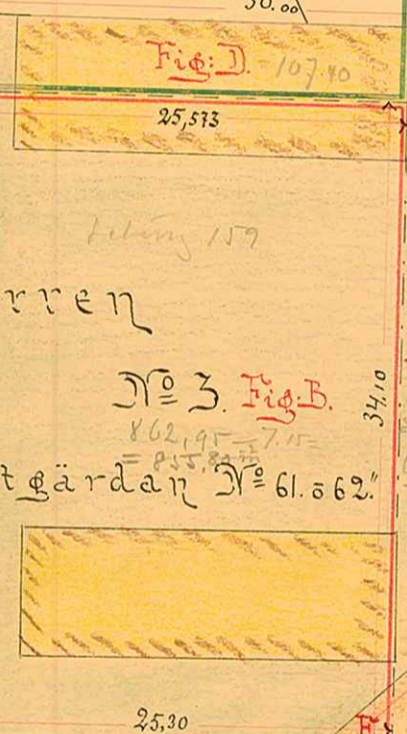 30.00
Fig: D. 107.40
25,573
159
rren
34,10
No 3. Fig: B.
862,95 — 7.15 =
= 855,80
tgärdan No 61. o 62."
25,30